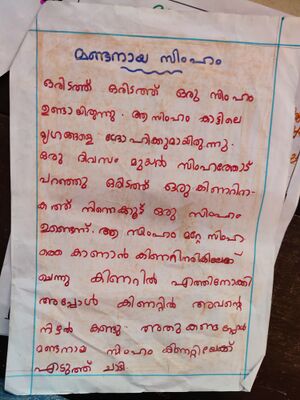 മണ്ടനായ സിംഹം
ഒരിടത്ത് ഒരിടത്ത് ഒരു സിംഹം
ഉണ്ടായിരുന്നു. ആ സിംഹം കാട്ടിലെ
മൃഗങ്ങളെ ദ്രോഹിക്കുമായിരുന്നു.
ഒരു ദിവസം മുയൽ സിംഹത്തോട്
പറഞ്ഞു ഒരിടത്ത് ഒരു കിണറിന-
കത്ത് നിന്നെക്കൂട് ഒരു സിംഹം
ഉണ്ടെന്ന്. ആ സിംഹം മറ്റേ സിംഹ
ത്തെ കാണാൻ കിണറ്റിനരികിലേക്ക്
ചെന്നു കിണറിൽ എത്തിനോക്കി
അപ്പോൾ കിണറ്റിൽ അവന്റെ
നിഴൽ കണ്ടു. അതു കണ്ടപ്പോൾ
മണ്ടനായ സിംഹം കിണറ്റിലേക്ക്
എടുത്ത് ചാടി